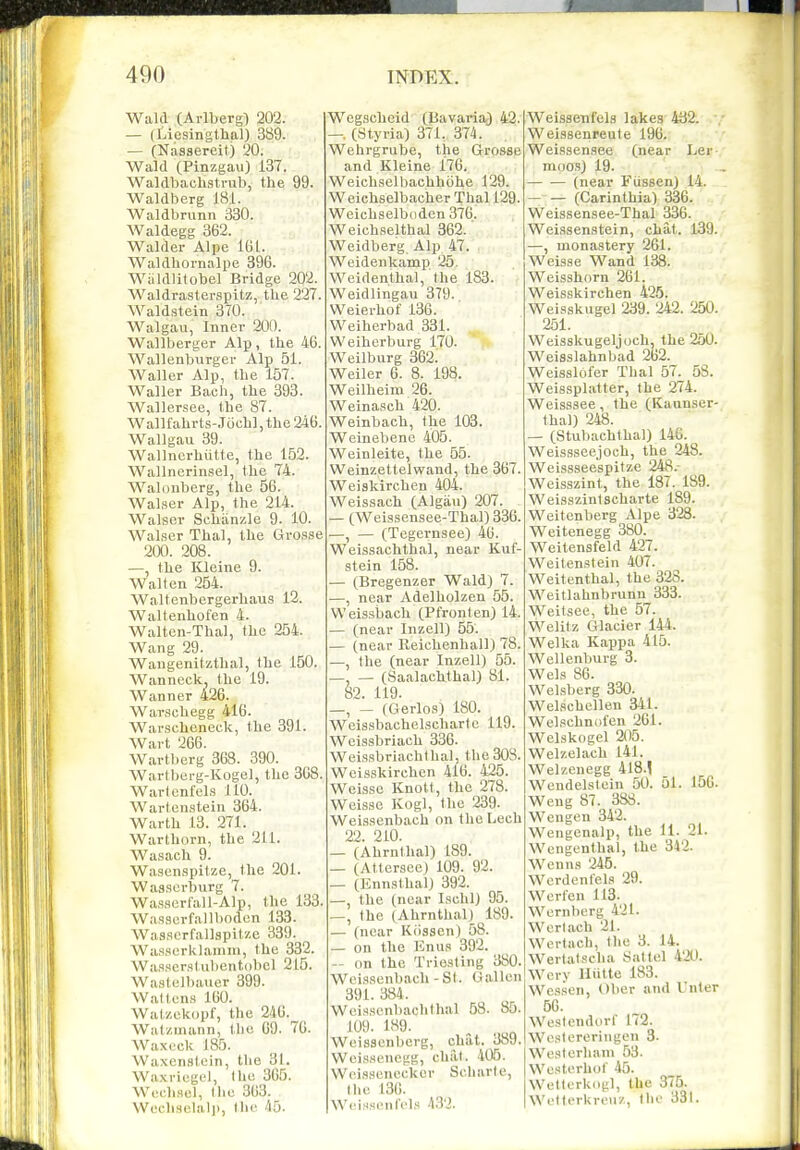 490 INDEX.
Wald (Arlberg) 202.
— (Liesingthal) 389.
— (Nassereit) 20.
Wald (Pinzgau) 137.
Waldbachstrub, the 99.
Waldberg 181.
Waldbrunn 330.
Waldegg 362.
Walder Alpe 161.
Waldhornalpe 396.
Wäldlitobel Bridge 202.
Waldrasterspitz, the 227.
Waldstein 370.
Walgau, Inner 200.
Wallberger Alp, the 46.
Wallenburger Alp 51.
Waller Alp, the 157.
Waller Bach, the 393.
Wallersee, the 87.
Wallfahrts-Jöchl, the 246.
Wallgau 39.
Wallnerhütte, the 152.
Wallnerinsel, the 74.
Walonberg, the 56.
Walser Alp, the 214.
Walser Schänzle 9. 10.
Walser Thal, the Grosse
200. 208.
—, the Kleine 9.
Walten 254.
Waltenbergerhaus 12.
Waltenhofen 4.
Walten-Thal, the 254.
Wang 29.
Wangenitzthal, the 150.
Wanneck, the 19.
Wanner 426.
Warschegg 416.
Warscheneck, the 391.
Wart 266.
Wartberg 368. 390.
Wartberg-Kogel, the 368.
Wartenfels 110.
Wartenstein 364.
Warth 13. 271.
Warthorn, the 211.
Wasach 9.
Wasenspitze, the 201.
Wasserburg 7.
Wasserfall-Alp, the 133.
Wasserfallboden 133.
Wasserfallspitze 339.
Wasserklamm, the 332.
Wasserstubentobel 215.
Wastelbauer 399.
Wattens 160.
Watzekopf, the 246.
Watzmann, the 69. 76.
Waxeck 185.
Waxenstein, the 31.
Waxriegel, the 365.
Wechsel, the 363.
Wechselalp, the 45.
Wegscheid (Bavaria) 42.
—. (Styria) 371. 374.
Wehrgrube, the Grosse
and Kleine 176.
Weichselbachhöhe 129.
Weichselbacher Thal 129.
Weichselboden 376.
Weichselthal 362.
Weidberg Alp 47.
Weidenkamp 25.
Weidenthal, the 183.
Weidlingau 379.
Weierhof 136.
Weiherbad 331.
Weiherburg 170.
Weilburg 362.
Weiler 6. 8. 198.
Weilheim 26.
Weinasch 420.
Weinbach, the 103.
Weinebene 405.
Weinleite, the 55.
Weinzettelwand, the 367.
Weiskirchen 404.
Weissach (Algäu) 207.
— (Weissensee-Thal) 336.
—, — (Tegernsee) 46.
Weissachthal, near Kuf-
stein 158.
— (Bregenzer Wald) 7.
—, near Adelholzen 55.
Weissbach (Pfronten) 14.
— (near Inzell) 55.
— (near Reichenhall) 78.
—, the (near Inzell) 55.
—, — (Saalachthal) 81.
82. 119.
—, — (Gerlos) 180.
Weissbachelscharte 119.
Weissbriach 336.
Weissbriachthal, the 308.
Weisskirchen 416. 425.
Weisse Knott, the 278.
Weisse Kogl, the 239.
Weissenbach on the Lech
22. 210.
— (Ahrnthal) 189.
— (Attersee) 109. 92.
— (Ennsthal) 392.
—, the (near Ischl) 95.
—, the (Ahrnthal) 189.
— (near Kössen) 58.
— on the Enns 392.
— on the Triesting 380.
Weissenbach-St. Gallen
391. 384.
Weissenbachthal 58. 85.
109. 189.
Weissenberg, chât. 389.
Weissenegg, chât. 405.
Weissenecker Scharte,
the 136.
Weissenfels 432.
Weissenfels lakes 432.
Weissenreute 196.
Weissensee (near Ler-
moos) 19.
— — (near Füssen) 14.
— — (Carinthia) 336.
Weissensee-Thal 336.
Weissenstein, chât. 139.
—, monastery 261.
Weisse Wand 138.
Weisshorn 261.
Weisskirchen 425.
Weisskugel 239. 242. 250.
251.
Weisskugeljoch, the 250.
Weisslahnbad 262.
Weisslofer Thal 57. 58.
Weissplatter, the 274.
Weisssee, the (Kaunser-
thal) 248.
— (Stubachthal) 146.
Weissseejoch, the 248.
Weissseespitze 248.
Weisszint, the 187. 189.
Weisszintscharte 189.
Weitenberg Alpe 328.
Weitenegg 380.
Weitensfeld 427.
Weitenstein 407.
Weitenthal, the 328.
Weitlahnbrunn 333.
Weitsee, the 57.
Welitz Glacier 144.
Welka Kappa 415.
Wellenburg 3.
Wels 86.
Welsberg 330.
Welschellen 341.
Welschnofen 261.
Welskogel 205.
Welzelach 141.
Welzenegg 418.
Wendelstein 50. 51. 156.
Weng 87. 388.
Wengen 342.
Wengenalp, the 11. 21.
Wengenthal, the 342.
Wenns 245.
Werdenfels 29.
Werfen 113.
Wernberg 421.
Wertach 21.
Wertach, the 3. 14.
Wertatscha Sattel 420.
Wery Hütte 183.
Wessen, Ober and Unter
56.
Westendorf 172.
Westereringen 3.
Westerham 53.
Westerhof 45.
Wetterkogl, the 375.
Wetterkreuz, the 331.